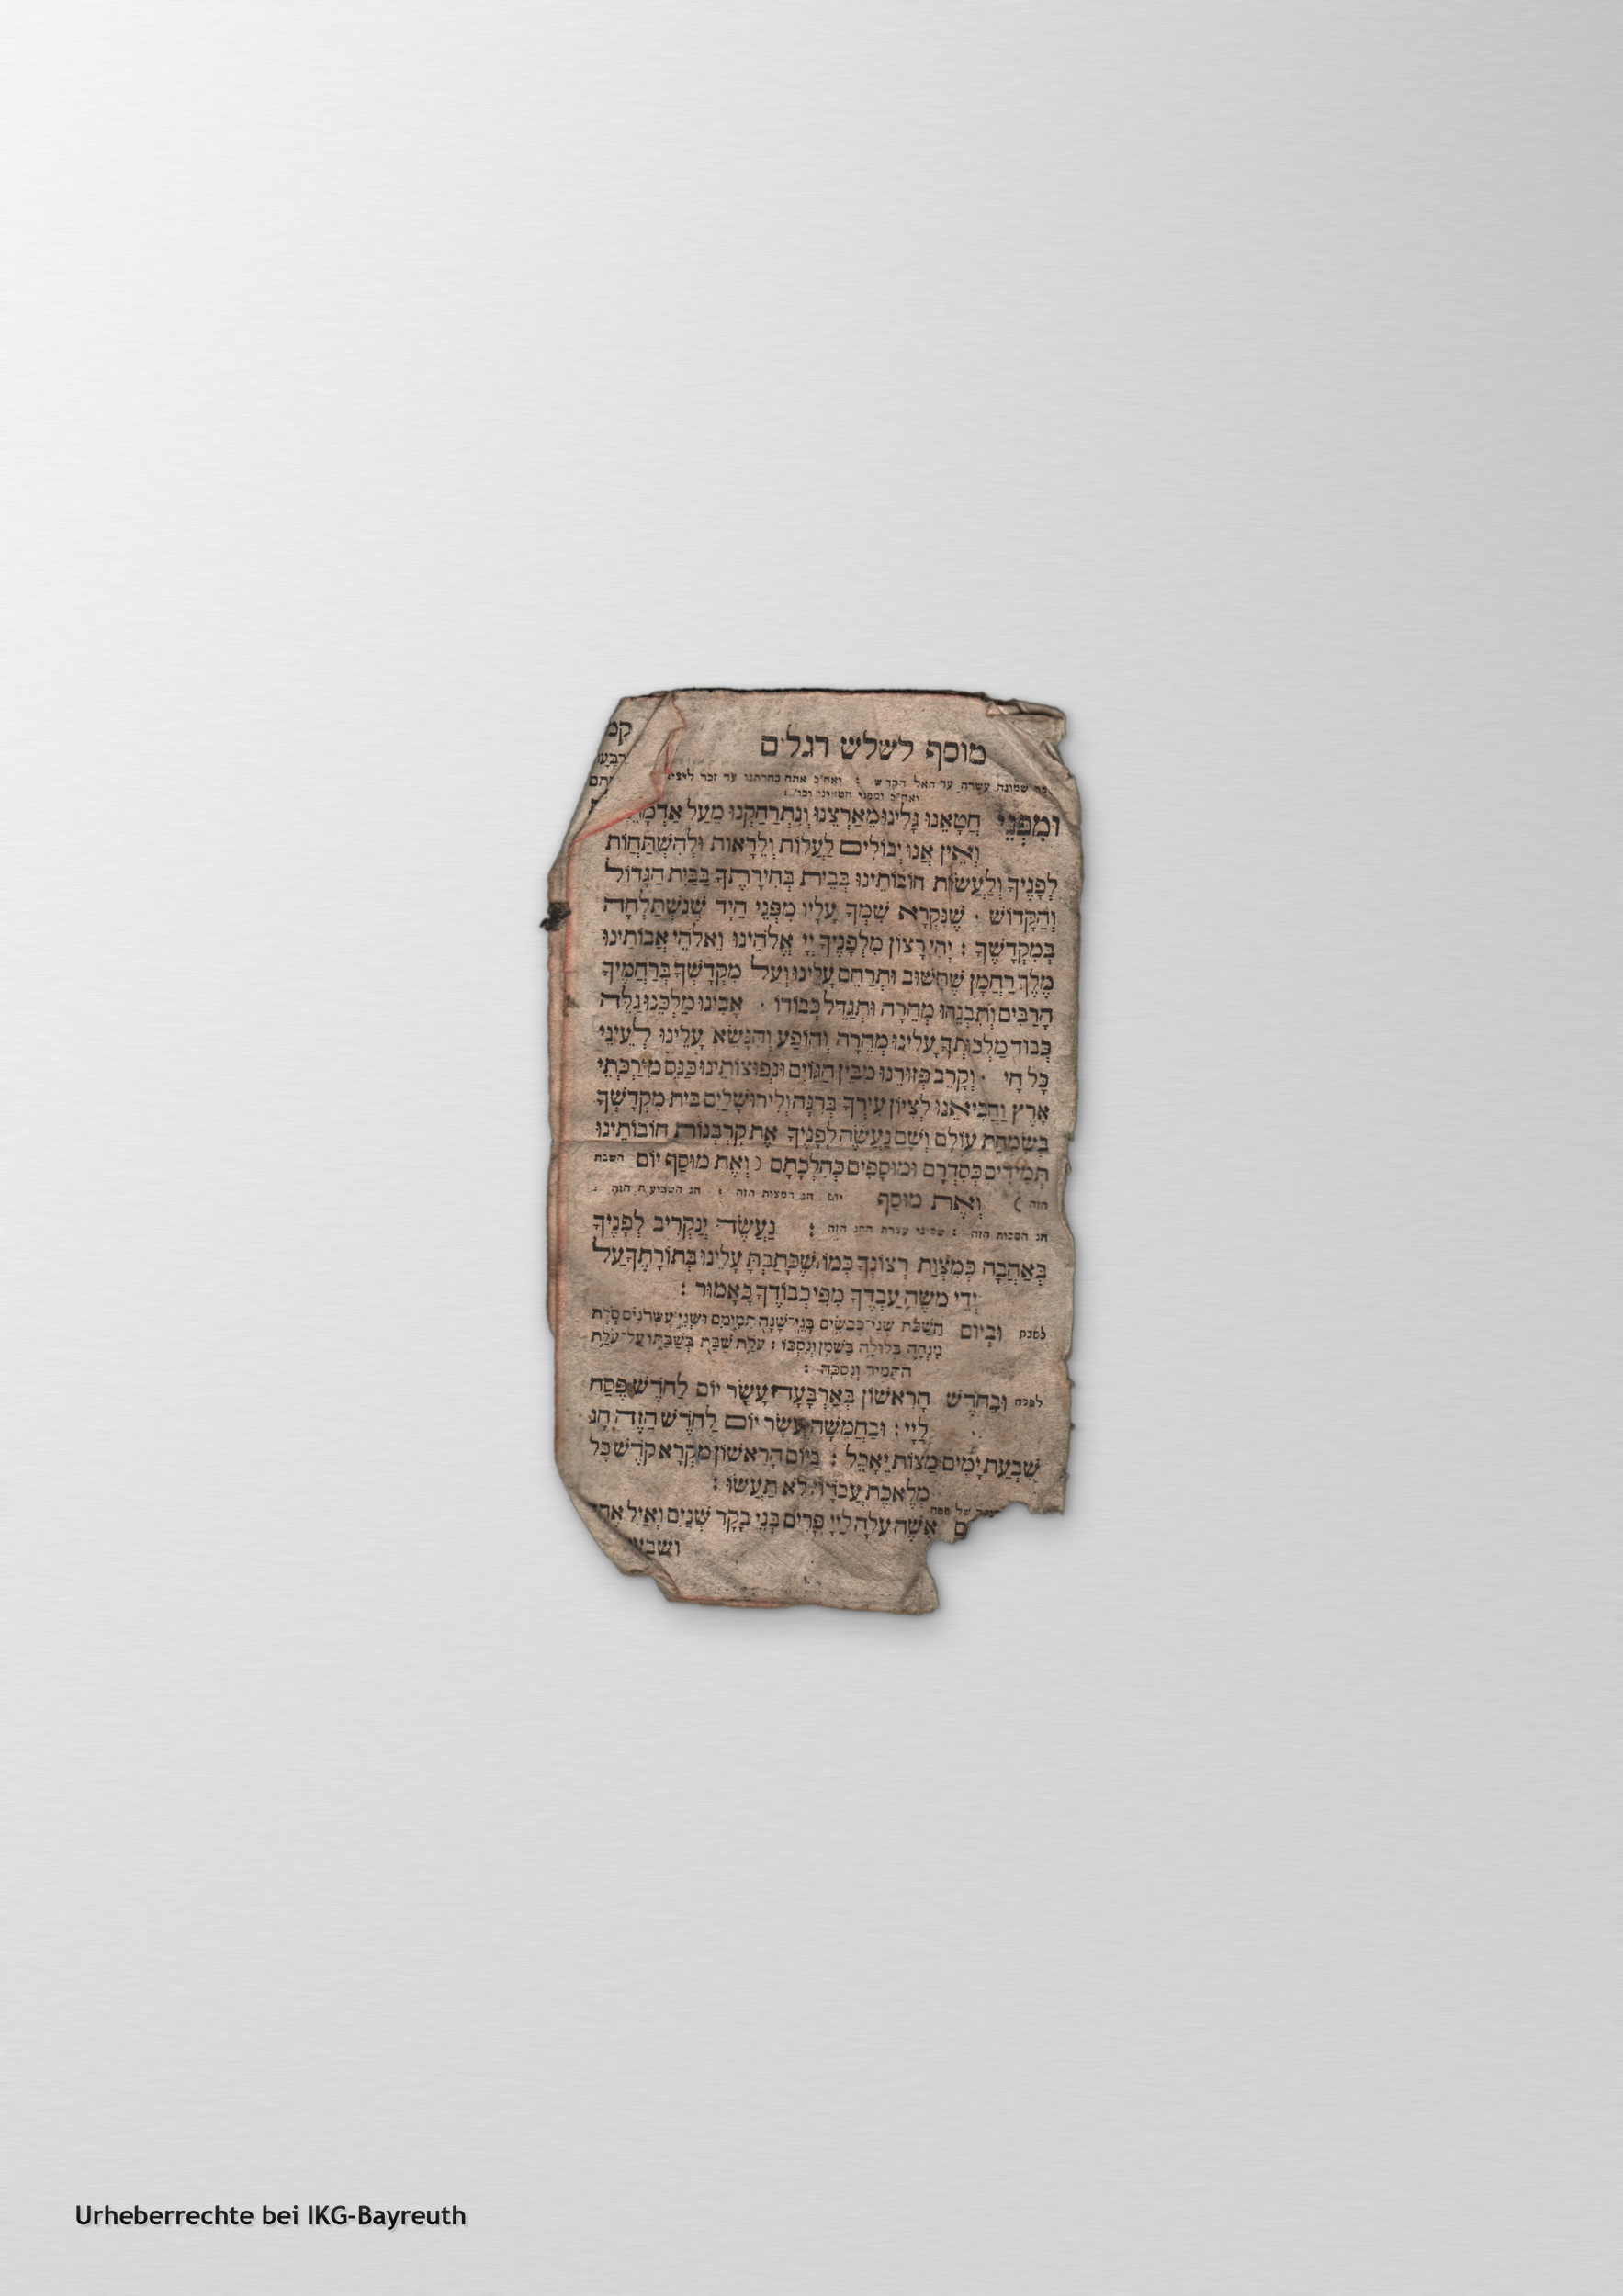 מוסף לשלש רגלים
שמונה עשרה עד האל הקדוש : ואח"כ אתה בחרתנו עד זכר
ואח"כ ומפני חטאינו וכו' :
וּמִפְּנֵי חֲטָאֵנוּ גָּלִינוּ מֵאַרְצֵנוּ וְנִתְרַחַקְנוּ מֵעַל
וְאֵין אֲנוּ יְכוֹלִים לַעֲלוֹת וְלֵרָאוֹת וּלְהִשְׁתַּחֲוֹת
לְפָנֶיךָ וְלַעֲשׂוֹת חוֹבוֹתֵינוּ בְּבֵית בְּחִירָתֶךָ בַּבַּיִת הַגָּדוֹל
וְהַקָּדוֹשׁ · שֶׁנִּקְרָא שִׁמְךָ עָלָיו מִפְּנֵי הַיָד שֶׁנִּשְׁתַּלְּחָה
בְּמִקְדָּשֶׁךָ : יְהִי רָצוֹן מִלְּפָנֶיךָ יְיָ אֱלֹהֵינוּ וֵאלֹהֵי אֲבוֹתֵינוּ
מֶלֶךְ רַחֲמָן שֶׁתָּשׁוּב וּתְרַחֵם עָלֵינוּ וְעַל מִקְדָּשְׁךָ בְּרַחֲמֶיךָ
הָרַבִּים וְתִבְנֵהוּ מְהֵרָה וּתְגַדֵּל כְּבוֹדוֹ · אָבִינוּ מַלְכֵּנוּ גַלֵּה
כְּבוֹד מַלְכוּתְךָ עָלֵינוּ מְהֵרָה וְהוֹפַע וְהִנָּשֵׂא עָלֵינוּ לְעֵינֵי
כָּל חָי · וְקָרֵב פְּזוּרֵנוּ מִבֵּין הַגּוֹיִם וּנְפוּצוֹתֵינוּ כַּנֵּס מִיַּרְכְּתֵי
אָרֶץ וַהֲבִיאֵנוּ לְצִיּוֹן עִירְךָ בְּרִנָּה וְלִירוּשָׁלַיִם בֵּית מִקְדָּשְׁךָ
בְּשִׂמְחַת עוֹלָם וְשָׁם נַעֲשֶׂה לְפָנֶיךָ אֶת קָרְבְּנוֹת חוֹבוֹתֵינוּ
תְּמִידִים כְּסִדְרָם וּמוּסָפִים כְּהִלְכָתָם ( וְאֶת מוּסַף יוֹם השבת
הזה ) וְאֶת מוּסַף יום חג המצות הזה : חג השבועות הזה :
חג הסכות הזה : שמיני עצרת החג הזה : נַעֲשֶׂה וְנַקְרִיב לְפָנֶיךָ
בְּאַהֲבָה כְּמִצְוַת רְצוֹנֶךָ כְּמוֹ שֶׁכָּתַבְתָּ עָלֵינוּ בְּתוֹרָתֶךָ עַל
יְדֵי מֹשֶׁה עַבְדֶּךָ מִפִּי כְבוֹדֶךָ כָּאָמוּר :
לשבת וּבְיוֹם הַשַּׁבָּת שְׁנֵי כְבָשִׂים בְּנֵי שָׁנָה תְּמִימִם וּשְׁנֵי עֶשְׂרֹנִים סֹלֶת
מִנְחָה בְּלוּלָה בַשֶּׁמֶן וְנִסְכּוֹ : עֹלַת שַׁבַּת בְּשַׁבַּתּוֹ עַל עֹלַת
הַתָּמִיד וְנִסְכָּהּ :
לפסח וּבַחֹדֶשׁ הָרִאשׁוֹן בְּאַרְבָּעָה עָשָׂר יוֹם לַחֹדֶשׁ פֶּסַח
לַיְיָ : וּבַחֲמִשָּׁה עָשָׂר יוֹם לַחֹדֶשׁ הַזֶּה חָג
שִׁבְעַת יָמִים מַצּוֹת יֵאָכֵל : בַּיּוֹם הָרִאשׁוֹן מִקְרָא קֹדֶשׁ כָּל
מְלֶאכֶת עֲבֹדָה לֹא תַעֲשׂוּ :
של פסח אִשֶּׁה עֹלָה לַיְיָ פָּרִים בְּנֵי בָקָר שְׁנַיִם וְאַיִל
Urheberrechte bei IKG-Bayreuth